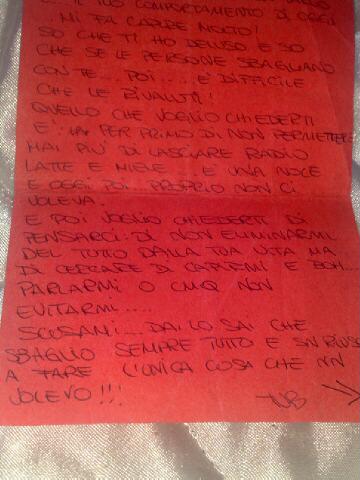 E... IL TUO COMPORTAMENTO DI OGGI
..MI FA CAPIRE MOLTO!
SO CHE TI HO DELUSO E SO
CHE SE LE PERSONE SBAGLIANO
CON TE.... POI .... E' DIFFICILE
CHE LE RIVALUTI!
QUELLO CHE VOGLIO CHIEDERTI
E' : PER PRIMO DI NON PERMETTERE
MAI PIU' DI LASCIARE RADIO
LATTE E MIELE... E' UNA VOCE
E OGGI POI PROPRIO NON CI
VOLEVA.
E POI VOGLIO CHIEDERTI DI
PENSARCI: DI NON ELIMINARMI
DEL TUTTO DALLA TUA VITA MA
DI CERCARE DI CAPIRMI E BOH...
PARLARMI O CMQ NON
EVITARMI.....
SCUSAMI....DAI LO SAI CHE
SBAGLIO SEMPRE TUTTO E
A FARE L'UNICA COSA CHE NN
VOLEVO!!!
TVB